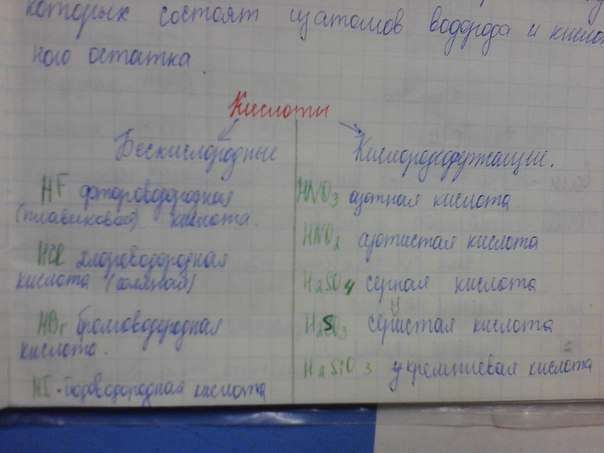 которых состоят из атомов водорода и кислот
ного остатка
Кислоты
Бескислородные
HF фтороводородная
(плавиковая) кислота.
HCl хлороводородная
кислота (соляная)
HBr бромоводородная
кислота.
HI - йодоводородная кислота
Кислородсодержащие.
HNO3 азотная кислота
HNO2 азотистая кислота
H2SO4 серная кислота
H2SO3 сернистая кислота
H2SiO3 кремниевая кислота